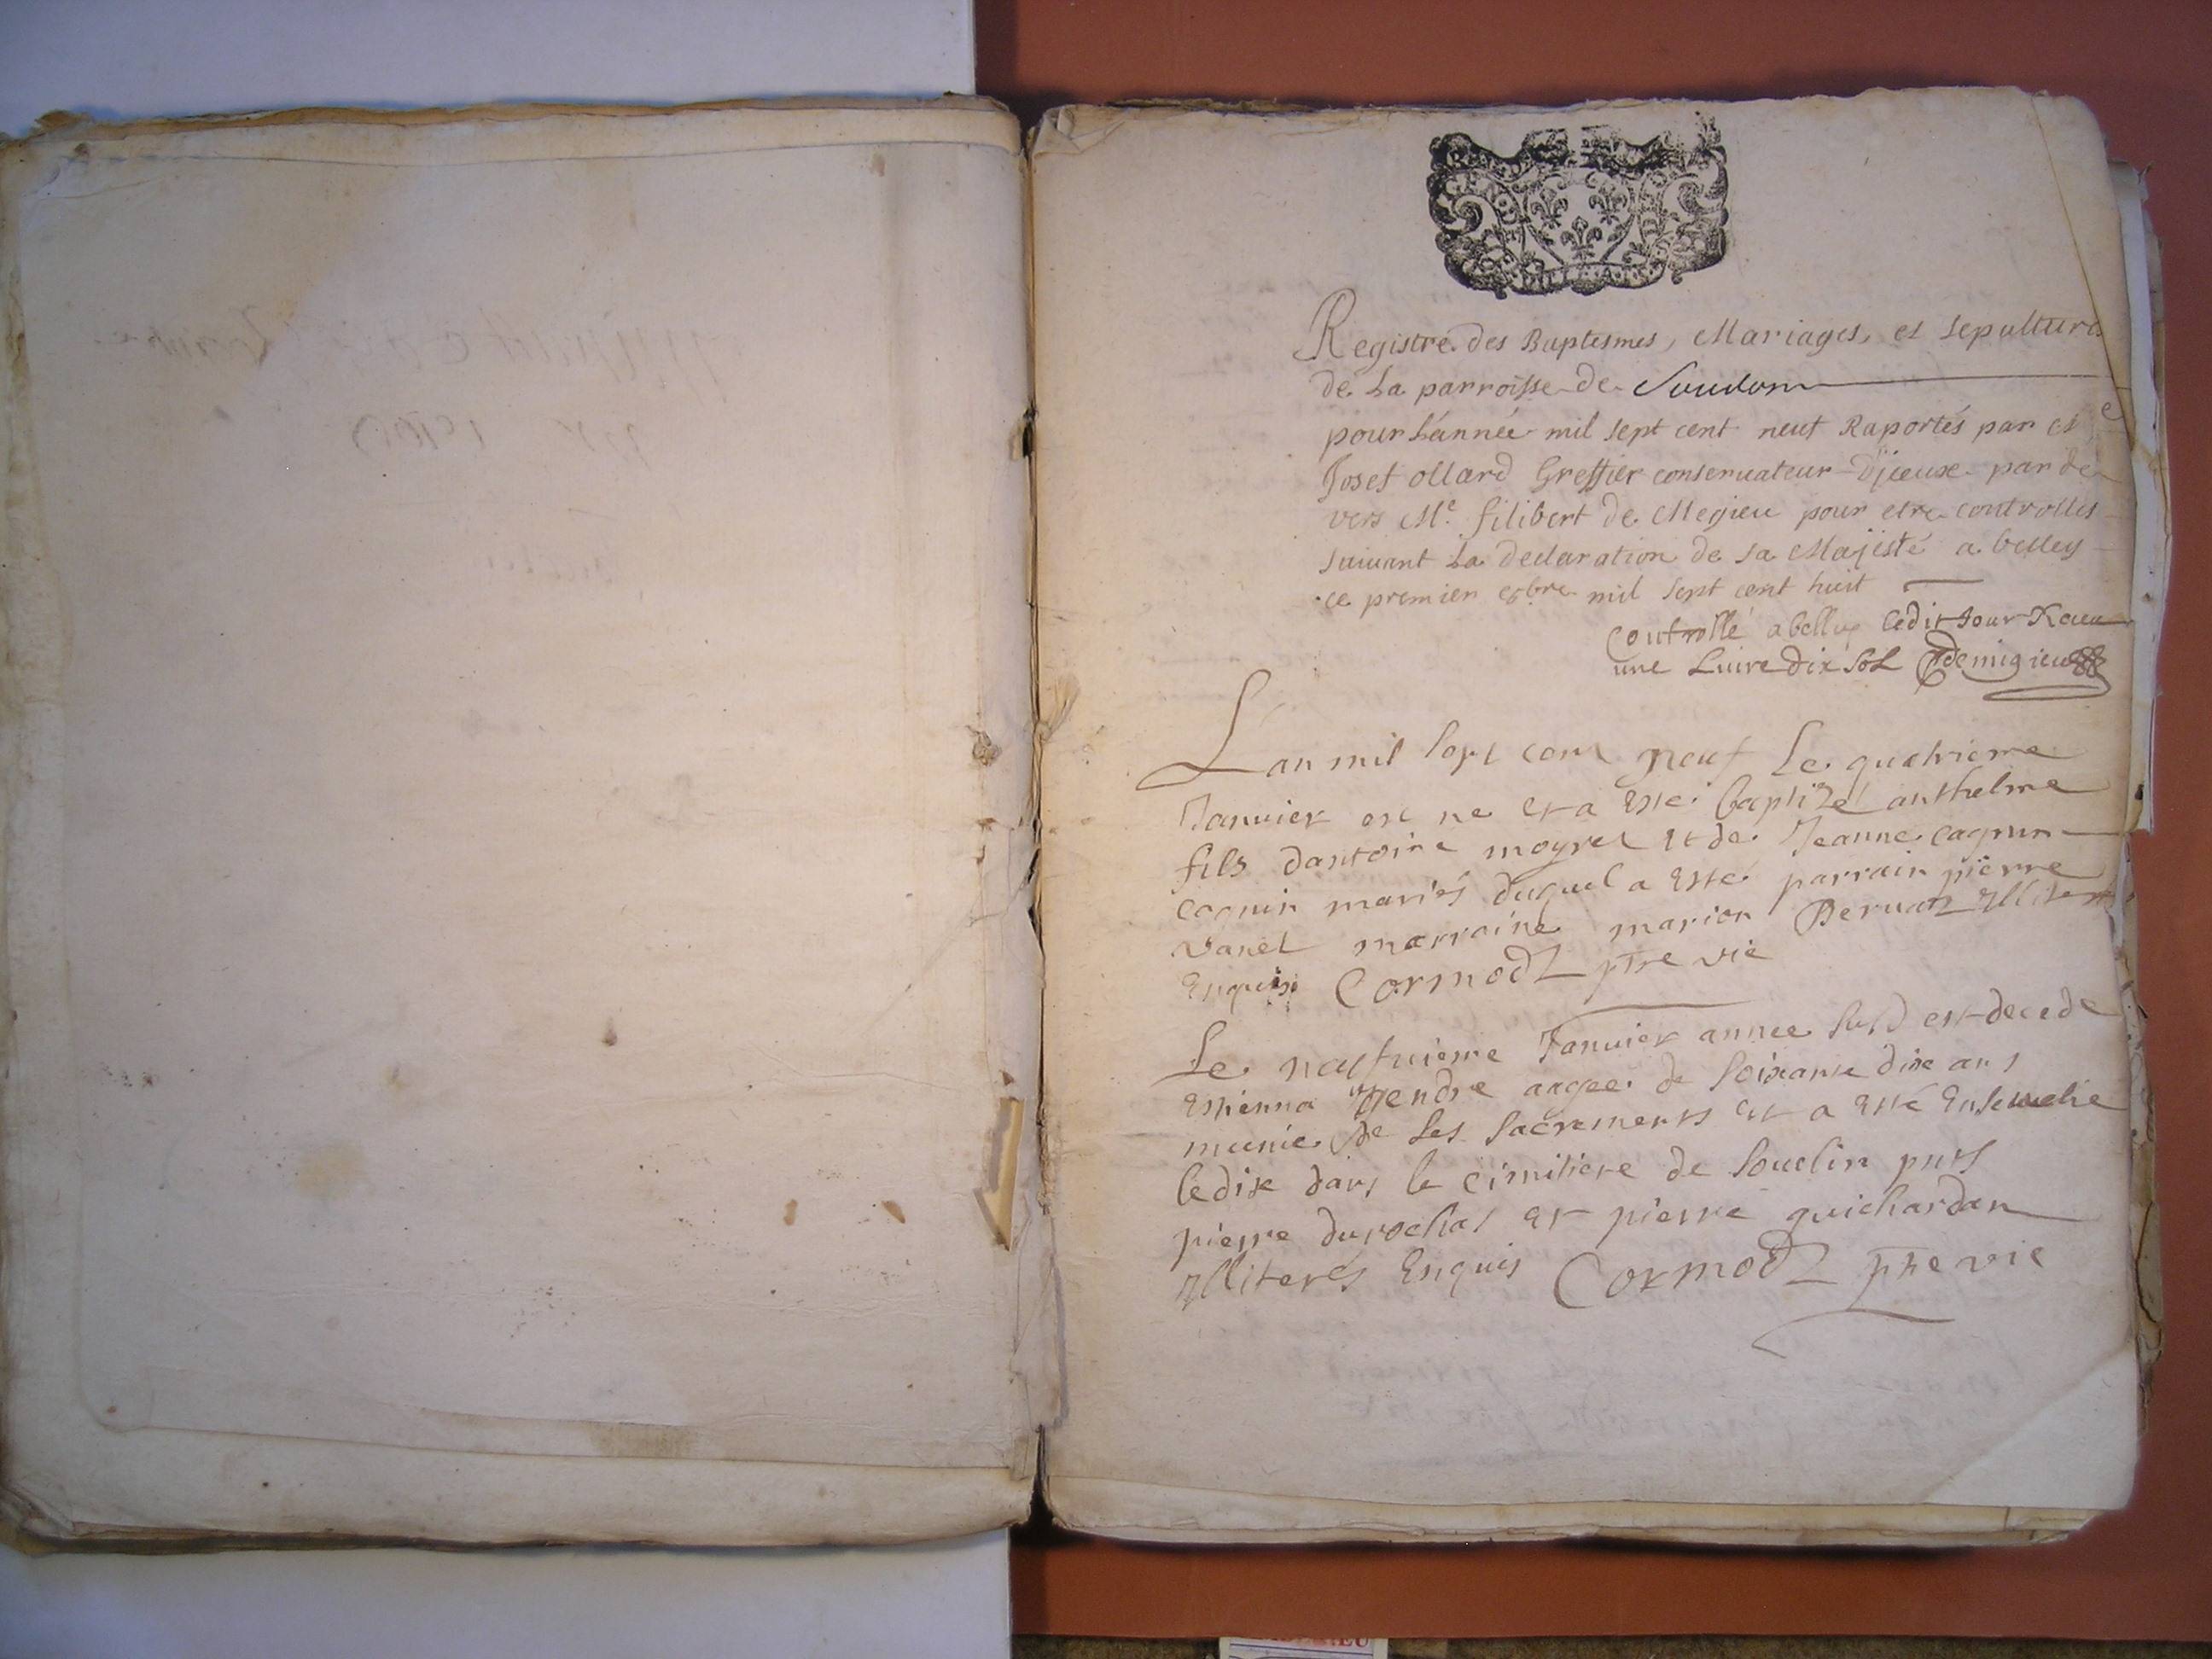 Registre des Baptesmes, Mariages, et sepultures
de La parroisse de Soudon
pour L'année mil sept cent neuf Raportés par
Josef ollard Greffier conservateur par de
vers Me. filibert de Megieu pour etre controlles
suivant La declaration de sa Majesté a belley
ce premier mil sept cent huit
Controllé a belley ledit Jour
une Livre dix Sol Demigieu
L an mil sept cent neuf Le quatrieme
Janvier est ne et a esté baptizé anthelme
fils dantoine moyret et de Jeanne
cognin mariés duquel a esté parrain pierre
vanel marraine marion
Enquis Cormod ptre vic
Le neufvieme Janvier annee susd est decede
Estienna gendre aagee de soixante dix ans
munie de ses sacrements et a esté Ensevelie
le dix dans le cimitiere de soudin pnts
pierre durochat et pierre guichardan
Illiterés Enquis Cormod ptre vic